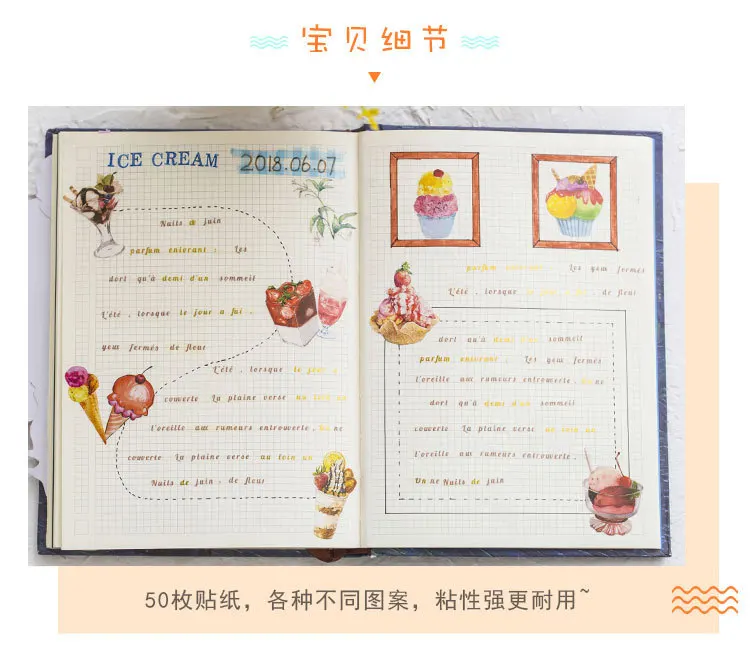 宝贝细节
ICE CREAM 2018.06.07
Nuits de juin
parfum enivrant : Les
dort qu'à demi d'un sommeil
L'été , lorsque le jour a fui ,
yeux fermés de fleur
L'été , lorsque le jour
couverte La plaine verse au loin un
l'oreille aux rumeurs entrouverte , ne
couverte La plaine verse au loin un
Nuits de juin , de fleur
parfum enivrant : Les yeux fermés
L'été , lorsque , de fleur
dort qu'à demi d'un sommeil
parfum enivrant : Les yeux fermés
l'oreille aux rumeurs entrouverte , ne
dort qu'à demi d'un sommeil
couverte La plaine verse au loin un
l'oreille aux rumeurs entrouverte ,
Un ne Nuits de juin
50枚贴纸，各种不同图案，粘性强更耐用~